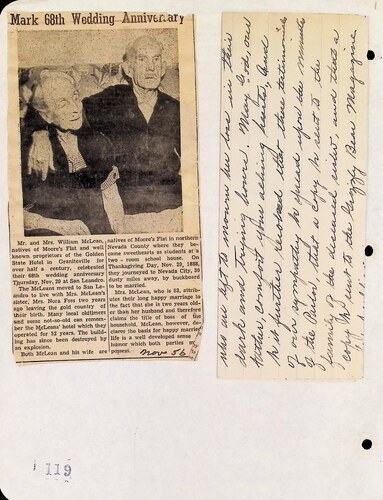 Mark 68th Wedding Anniversary
Mr. and Mrs. William McLean,
natives of Moore's Flat and well
known proprietors of the Golden
State Hotel in Graniteville for
over half a century, celebrated
their 68th wedding anniversary
Thursday, Nov. 29 at San Leandro.
The McLeans moved to San Le-
andro to live with Mrs. McLean's
sister, Mrs. Nora Foss two years
ago leaving the gold country of
their birth. Many local oldtimers
and some not-so-old can remem-
ber the McLeans' hotel which they
operated for 52 years. The build-
ing has since been destroyed by
an explosion.
Both McLean and his wife are
natives of Moore's Flat in northern
Nevada County where they be-
came sweethearts as students at a
two-room school house. On
Thanksgiving Day, Nov. 29, 1888,
they journeyed to Nevada City, 20
dusty miles away, by buckboard
to be married.
Mrs. McLean, who is 83, attri-
butes their long happy marriage to
the fact that she is two years old-
er than her husband and therefore
claims the title of boss of the
household. McLean, however, de-
clares the basis for happy married
life is a well developed sense
humor which both parties
possess.
Nov 56
who are left to mourn her loss in their
dark and trying hours. May God, our
Father, comfort your aching hearts, and
be it further resolved that these testimonials
of our sympathy be spread upon the minutes
of the Parlor, that a copy be sent to the
family of the deceased sister and that a
copy be sent to the Grizzly Bear Magazine.
119